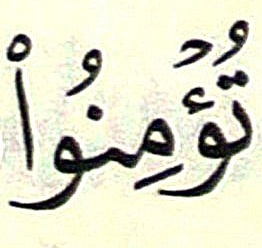 تُؤۡمِنُواْ